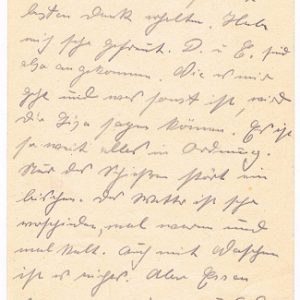 besten Dank erhalten. Habe
mich sehr gefreut. D. u. E. sind
also angekommen. Wie es mir
geht und was sonst ist, wird
die Giza sagen können. Es ist
so weit alles in Ordnung.
Nur das Schießen stört ein
bischen. Das Wetter ist sehr
verschieden, mal warm und
mal kalt. Auch mit Waschen
ist es nichts. Aber Essen